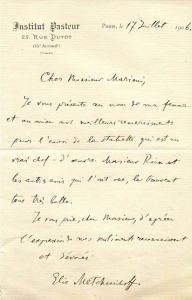 Institut Pasteur
25, Rue Dutot
Paris, le 17 Juillet 1906.
Cher Monsieur Mariani,
Je vous présente au nom de ma femme
et au mien nos meilleurs remerciements
pour l'envoi de la statuette qui est un
vrai chef-d'œuvre. Monsieur Roux et
les autres amis qui l'ont vue, la trouvent
tous très belle.
Je vous prie, cher Monsieur, d'agréer
l'expression de mes sentiments reconnaissants
et dévoués
Elie Metchnikoff